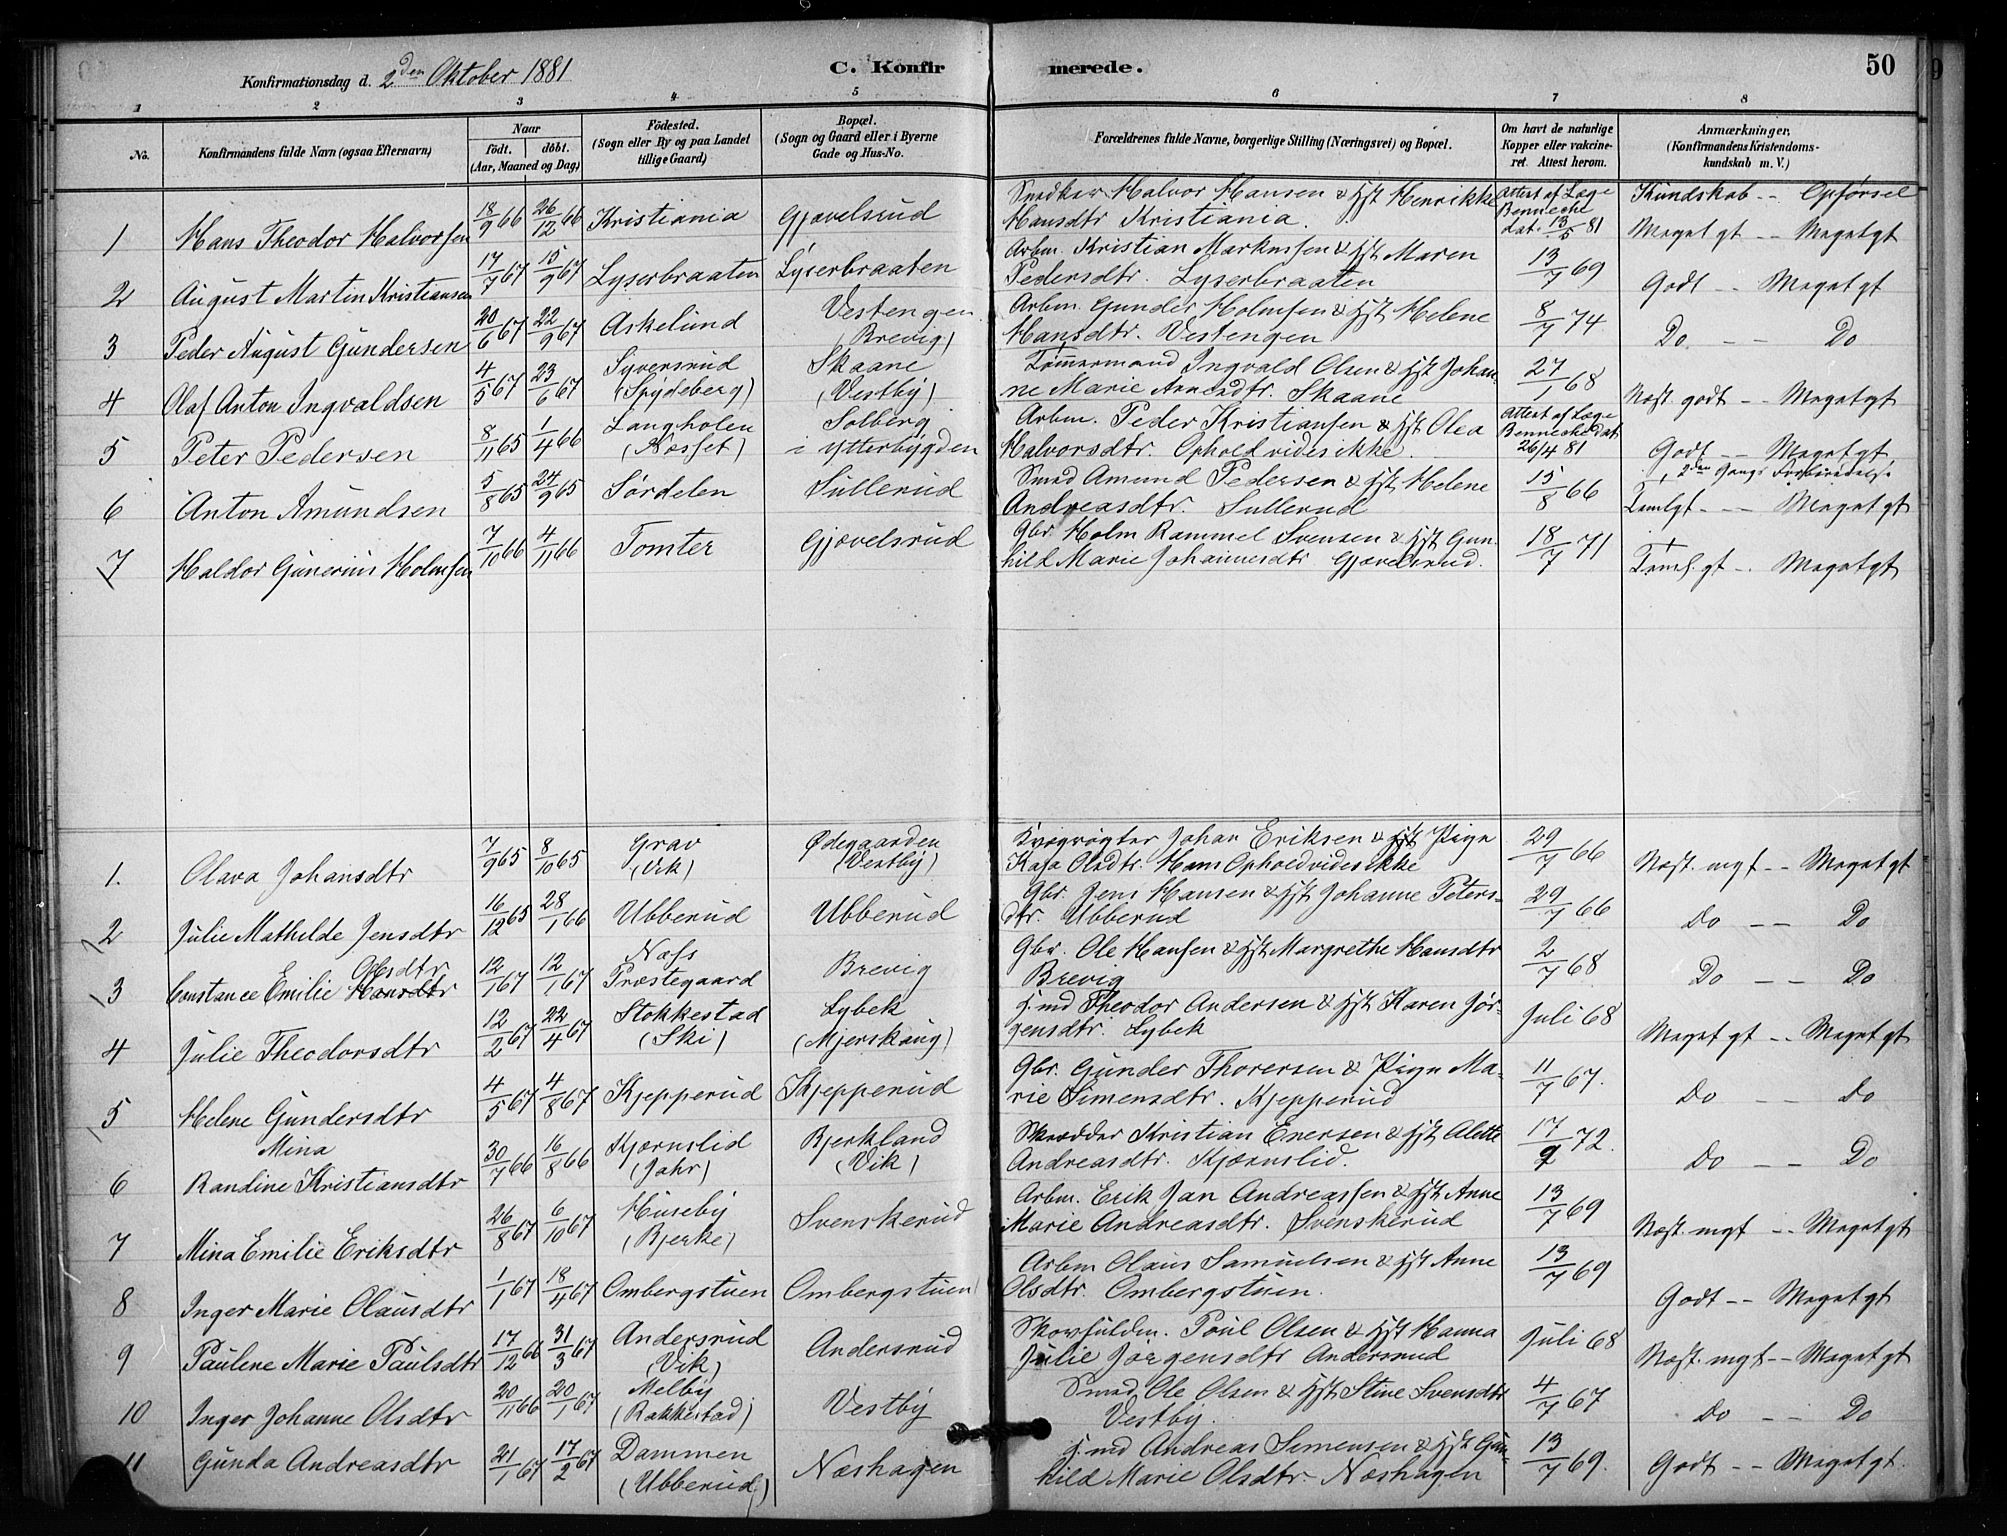 Konfirmationsdag d. 2den Oktober 1881
C. Konfirmerede.
50
1 2 3 4 5 6 7 8
No.
Konfirmandens fulde Navn (ogsaa Efternavn)
Naar
födt. döbt.
(Aar, Maaned og Dag)
Födested.
(Sogn eller By og paa Landet
tillige Gaard)
Bopæl.
(Sogn og Gaard eller i Byerne
Gade og Hus-No.
Forældrenes fulde Navne, borgerlige Stilling (Næringsvei) og Bopæl.
Om havt de naturlige
Kopper eller vakcine-
ret. Attest herom.
Anmærkninger,
(Konfirmandens Kristendoms-
kundskab m. V.)
Kundskab -- Opførsel
1 Hans Theodor Halvorsen 18/9 66 26/12 66 Kristiania Gjævelsrud
Snedker Halvor Hansen & Hst Henrikke
Hansdtr Kristiania.
Attest af Læge
Benneche
dat. 13/5 81
Meget gt -- Meget gt
2 August Martin Kristiansen 17/7 67 15/9 67 Lyserbraaten Lyserbraaten
Arbm. Kristian Markussen & Hst Maren
Pedersdtr Lyserbraaten
13/7 69
Godt -- Meget gt
3 Peder August Gundersen 20/6 67 22/9 67 Askelund Vestengen
(Brevig)
Arbm. Gunder Holmsen & Hst Helene
Hansdtr. Vestengen
8/7 74
Do -- Do
4 Olaf Anton Ingvaldsen 4/5 67 23/6 67 Syversrud
(Spydeberg)
Skaane
(Vestby)
Tømmermand Ingvald Olsen & Hst Johan-
ne Marie Arnesdtr. Skaane
27/1 68
Næst godt -- Meget gt
5 Peter Pedersen 8/11 65 1/4 66 Langholen
(Næsset)
Solberg
i Ytterbygden
Arbm. Peder Kristiansen & Hst Olea
Halvorsdtr. Ophold vides ikke.
Attest af Læge
Benneche dat
26/4 81
Godt -- Meget gt,
2den Gangs Forberedelse
6 Anton Amundsen 5/8 65 24/9 65 Sørdelen Sullerud
Smed Amund Pedersen & Hst Helene
Andreasdtr. Sullerud
15/8 66
Temlgt -- Meget gt
7 Haldor Gunerius Holmsen 7/10 66 4/11 66 Tomter Gjævelsrud
Gbr. Holm Rammel Svensen & Hst Gun-
hild Marie Johannesdtr Gjævelsrud.
18/7 71
Teml. gt -- Meget gt
1. Olava Johansdtr 7/9 65 8/10 65 Grav
(Vik)
Ødegaarden
(Vestby)
Kvægrøgter Johan Eriksen & Pige
Kaja Olsdtr. Hans Ophold vides ikke
29/7 66
Næst. mgt -- Meget gt
2 Julie Mathilde Jensdtr 16/12 65 28/1 66 Ubberud Ubberud
Gbr. Jens Hansen & Hst Johanne Peters-
dtr. Ubberud
29/7 66
Do -- Do
3 Constance Emilie Olsdtr 12/1 67 12/1 67 Næss
Præstegaard
Brevig
Gbr. Ole Hansen & Hst Margrethe Hansdtr
Brevig
2/7 68
Do -- Do
4 Julie Theodorsdtr 12/2 67 22/4 67 Stokkestad
(Ski)
Lybek
(Mjerskaug)
J. md Theodor Andersen & Hst Karen Jør-
gensdtr. Lybek
Juli 68
Meget gt -- Meget gt
5 Helene Gundersdtr 4/5 67 4/8 67 Kjepperud Kjepperud
Gbr. Gunder Thorersen & Pige Ma-
rie Simensdtr. Kjepperud
11/7 67.
Do -- Do
6 Mina
Randine Kristiansdtr 30/7 66 16/8 66 Kjærnslid
(Jahr)
Bjerkland
(Vik)
Skrædder Kristian Enersen & Hst Alette
Andreasdtr. Kjærnslid.
17/9 72.
Do -- Do
7 Mina Emilie Eriksdtr 26/8 67 6/10 67 Huseby
(Bjerke)
Svenskerud
Arbm. Erik Jan Andreassen & Hst Anne
Marie Andreasdtr. Svenskerud
13/7 69
Næst. mgt -- Meget gt
8 Inger Marie Olausdtr 1/1 67 18/4 67 Ombergstuen Ombergstuen
Arbm Olaus Samuelsen & Hst Anne
Olsdtr. Ombergstuen.
13/7 69
Godt -- Meget gt
9 Paulene Marie Paulsdtr 17/12 66 31/3 67 Andersrud
(Vik)
Andersrud
Skovfuldm. Poul Olsen & Hst Hanna
Julie Jørgensdtr Andersrud
Juli 68
Næst. mgt -- Meget gt
10 Inger Johanne Olsdtr 20/11 66 20/1 67 Melby
(Rakkestad)
Vestby
Smed Ole Olsen & Hst Stine Svensdtr
Vestby.
4/7 67
Do -- Do
11 Gunda Andreasdtr 21/1 67 17/2 67 Dammen
(Ubberud)
Næshagen
J. md Andreas Simensen & Hst Gun-
hild Marie Olsdtr. Næshagen
13/7 69.
Godt -- Meget gt.